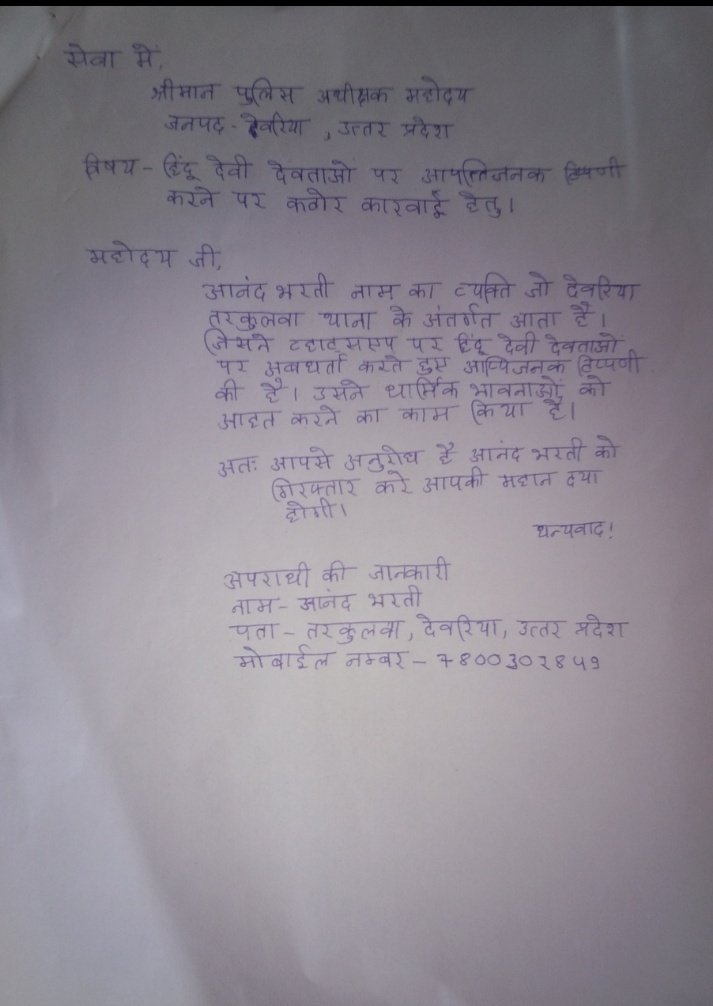 सेवा में,
श्रीमान पुलिस अधीक्षक महोदय
जनपद - देवरिया , उत्तर प्रदेश
विषय - हिंदू देवी देवताओं पर आपत्तिजनक टिप्पणी
करने पर कठोर कारवाई हेतु।
महोदय जी,
आनंद भरती नाम का व्यक्ति जो देवरिया
तरकुलवा थाना के अंतर्गत आता है।
जिसने व्हाट्सएप पर हिंदू देवी देवताओं
पर अबधर्ता करते हुए आप्पिजनक टिप्पणी
की है। उसने धार्मिक भावनाओं को
आहत करने का काम किया है।
अतः आपसे अनुरोध है आनंद भरती को
गिरफ्तार करे आपकी महान दया
होगी।
धन्यवाद!
अपराधी की जानकारी
नाम - आनंद भरती
पता - तरकुलवा, देवरिया, उत्तर प्रदेश
मोबाईल नम्बर - 7800302849